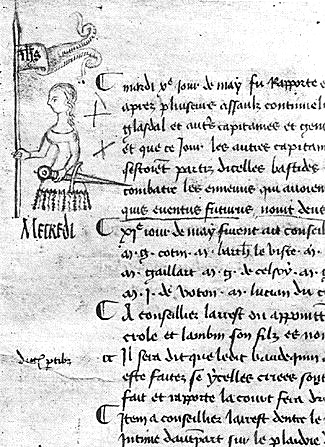 ihs
mardi xe jour de may fu Rapporte
apres pluseurs assaulz continuel
glasdal et autres capitaines et gens
et que ce jour les autres capitain
sestoient partiz dicelles bastides
combatre les ennemis qui avoient
quis eventus futurus novit deus
Mecredi
xje jour de may furent au conseil
m. g. cotin. m. barth le viste. m.
m. gaillart m. g. de celsoy. m. g
m. J. de voton. m. lucian du
A conseillier larrest ou
crole et lambin son filz es
Il sera dit que ledit baudequin
este faitez si ycelles criees
fait et rapporte la court fera
Item a conseillier larrest dentre le
Intime dautrepart sur le plaidoie